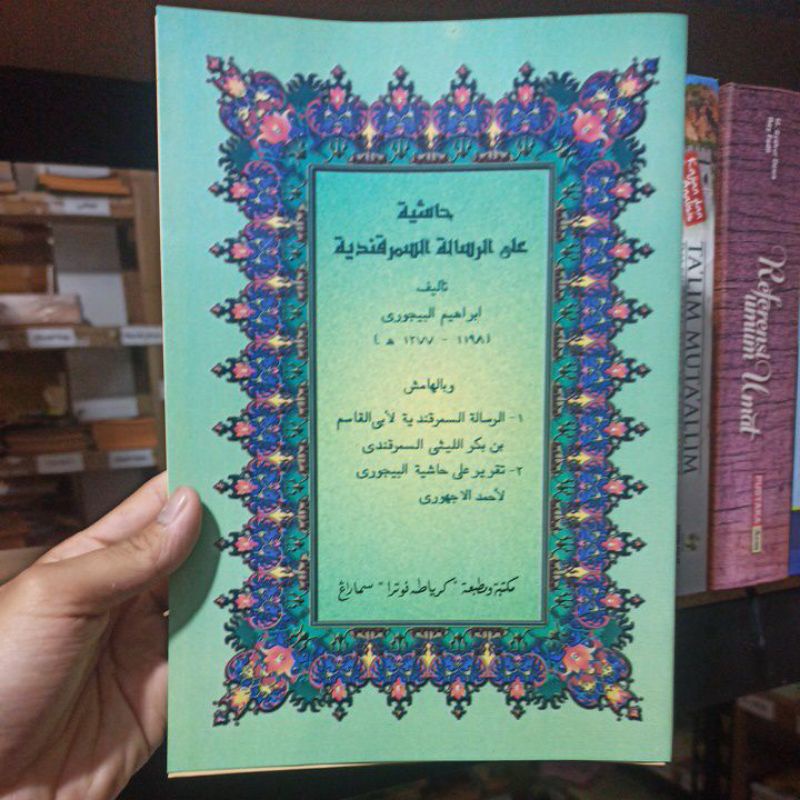 حاشية
على الرسالة السمرقندية
تاليف
ابراهيم البيجورى
(١١٩٨ - ١٢٧٧ هـ)
وبالهامش
١- الرسالة السمرقندية لأبى القاسم
بن بكر الليثى السمرقندى
٢- تقرير على حاشية البيجورى
لأحمد الاجهورى
مكتبة ومطبعة "كرياطه فوترا" سماراغ
TA'LIM MUTA'ALLIM
Referensi
Umat